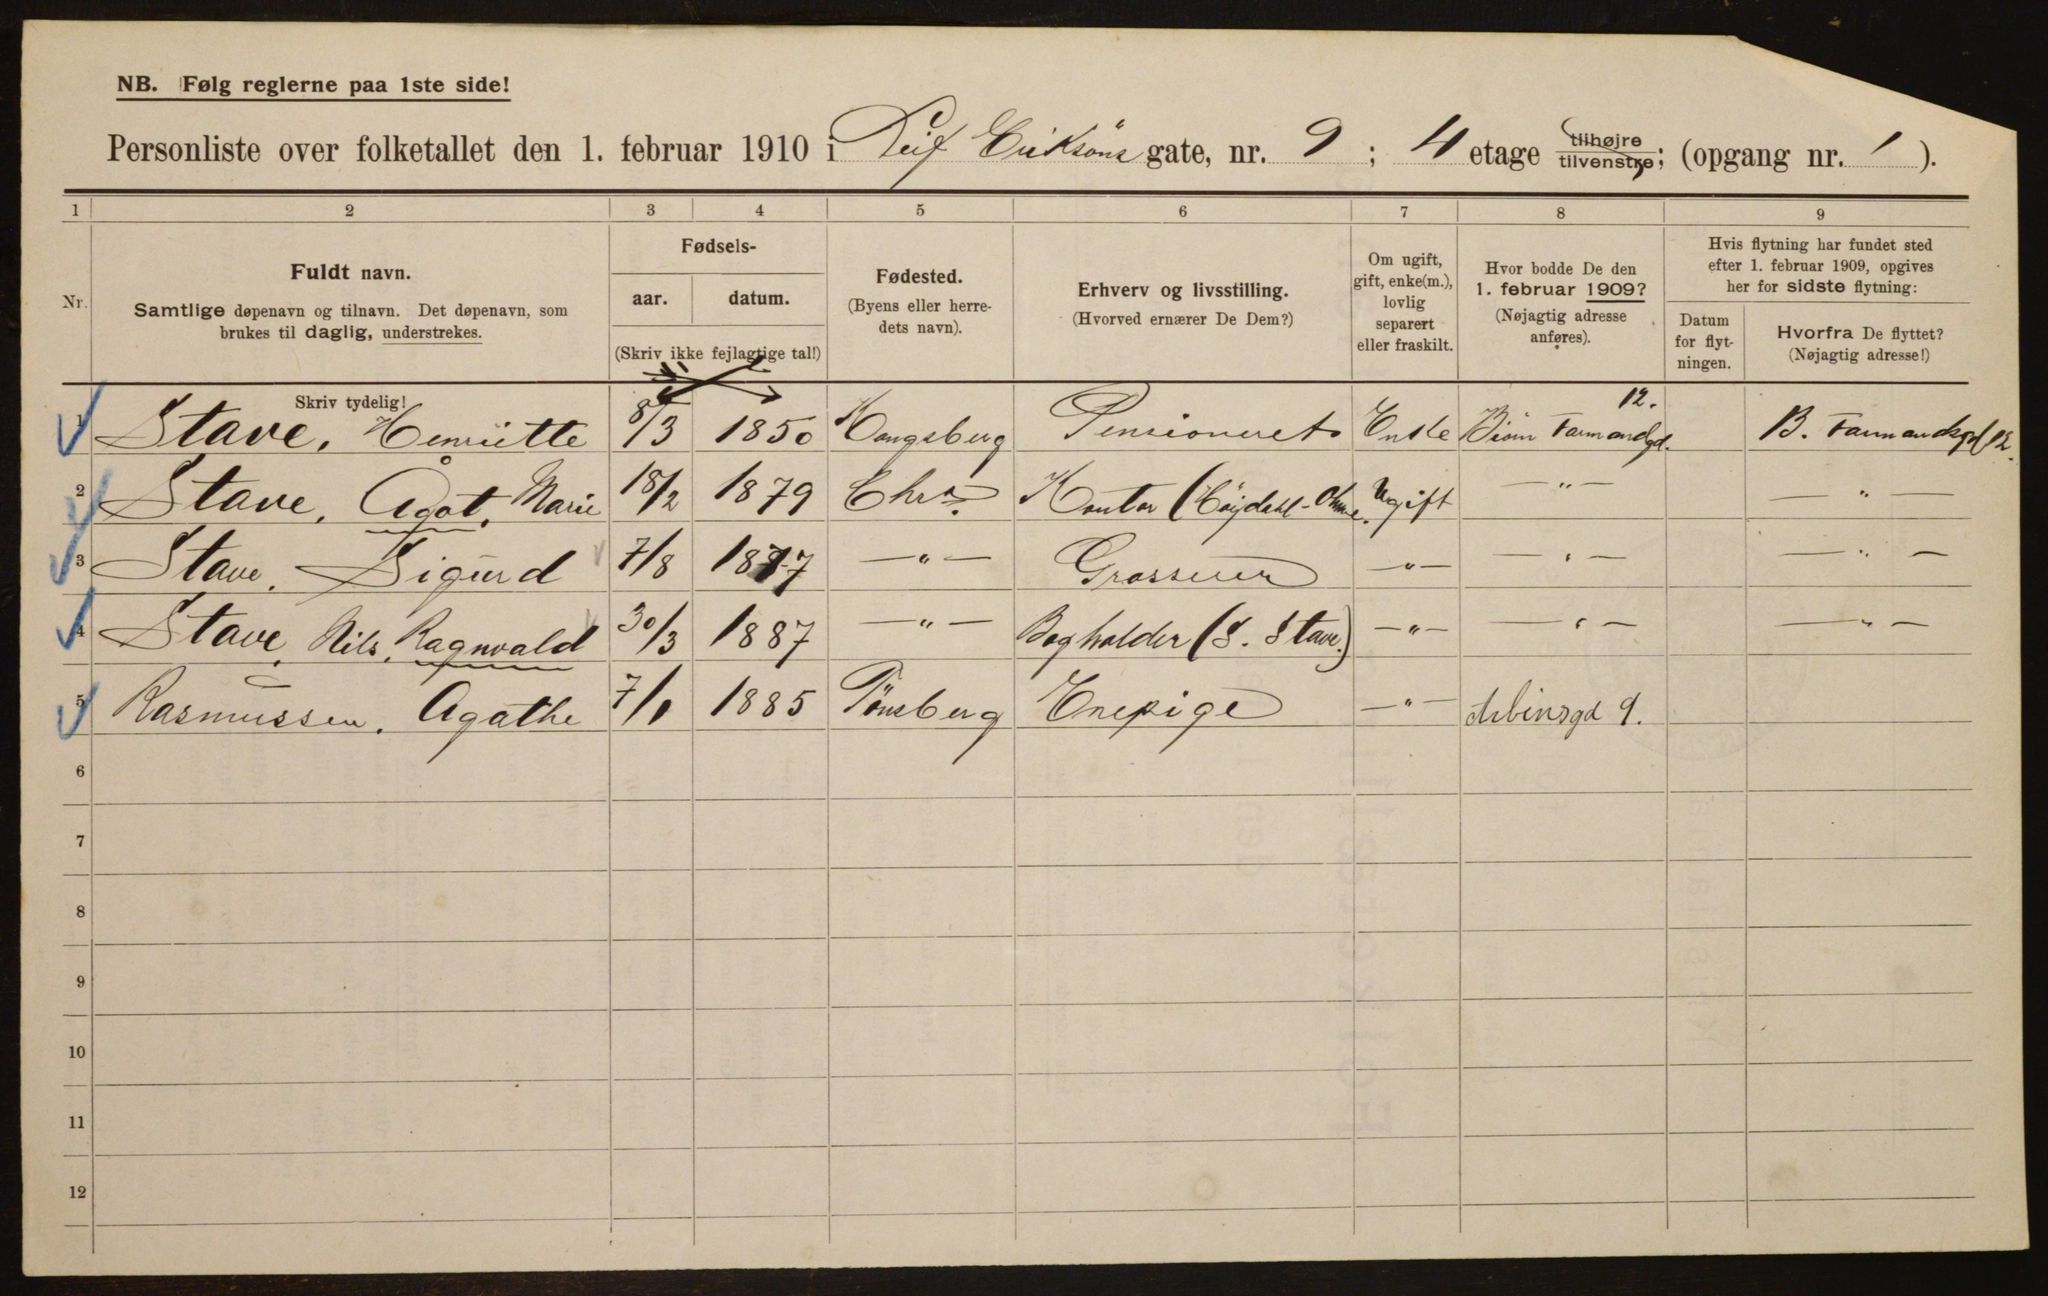 NB. Følg reglerne paa 1ste side!
Personliste over folketallet den 1. februar 1910 i Leif Eriksöns gate, nr. 9; 4 etage tilhøjre tilvenstre; (opgang nr. 1).
1 2 3 4 5 6 7 8 9
Nr.
Fuldt navn.
Samtlige døpenavn og tilnavn. Det døpenavn, som
brukes til daglig, understrekes.
Skriv tydelig!
Fødsels-
aar. datum.
(Skriv ikke fejlagtige tal!)
Fødested.
(Byens eller herre-
dets navn).
Erhverv og livsstilling.
(Hvorved ernærer De Dem?)
Om ugift,
gift, enke(m.),
lovlig
separert
eller fraskilt.
Hvor bodde De den
1. februar 1909?
(Nøjagtig adresse
anføres).
Hvis flytning har fundet sted
efter 1. februar 1909, opgives
her for sidste flytning:
Datum
for flyt-
ningen.
Hvorfra De flyttet?
(Nøjagtig adresse!)
1 Stave, Henriette 8/3 1850 Kongsberg Pensioneret Enke Biørn Farmandgd. 12. B. Farmandsgd 12.
2 Stave, Ågot, Marie 18/2 1879 Chra. Kontor ( Ugift — " — — " —
3 Stave, Sigurd 7/8 1877 — " — Grosserer — " — — " — — " —
4 Stave, Nils, Ragnvald 30/3 1887 — " — Bogholder (S. Stave.) — " — — " — — " —
5 Rasmussen, Agathe 7/1 1885 Tønsberg Enepige — " — Arbinsgd 9.
6
7
8
9
10
11
12